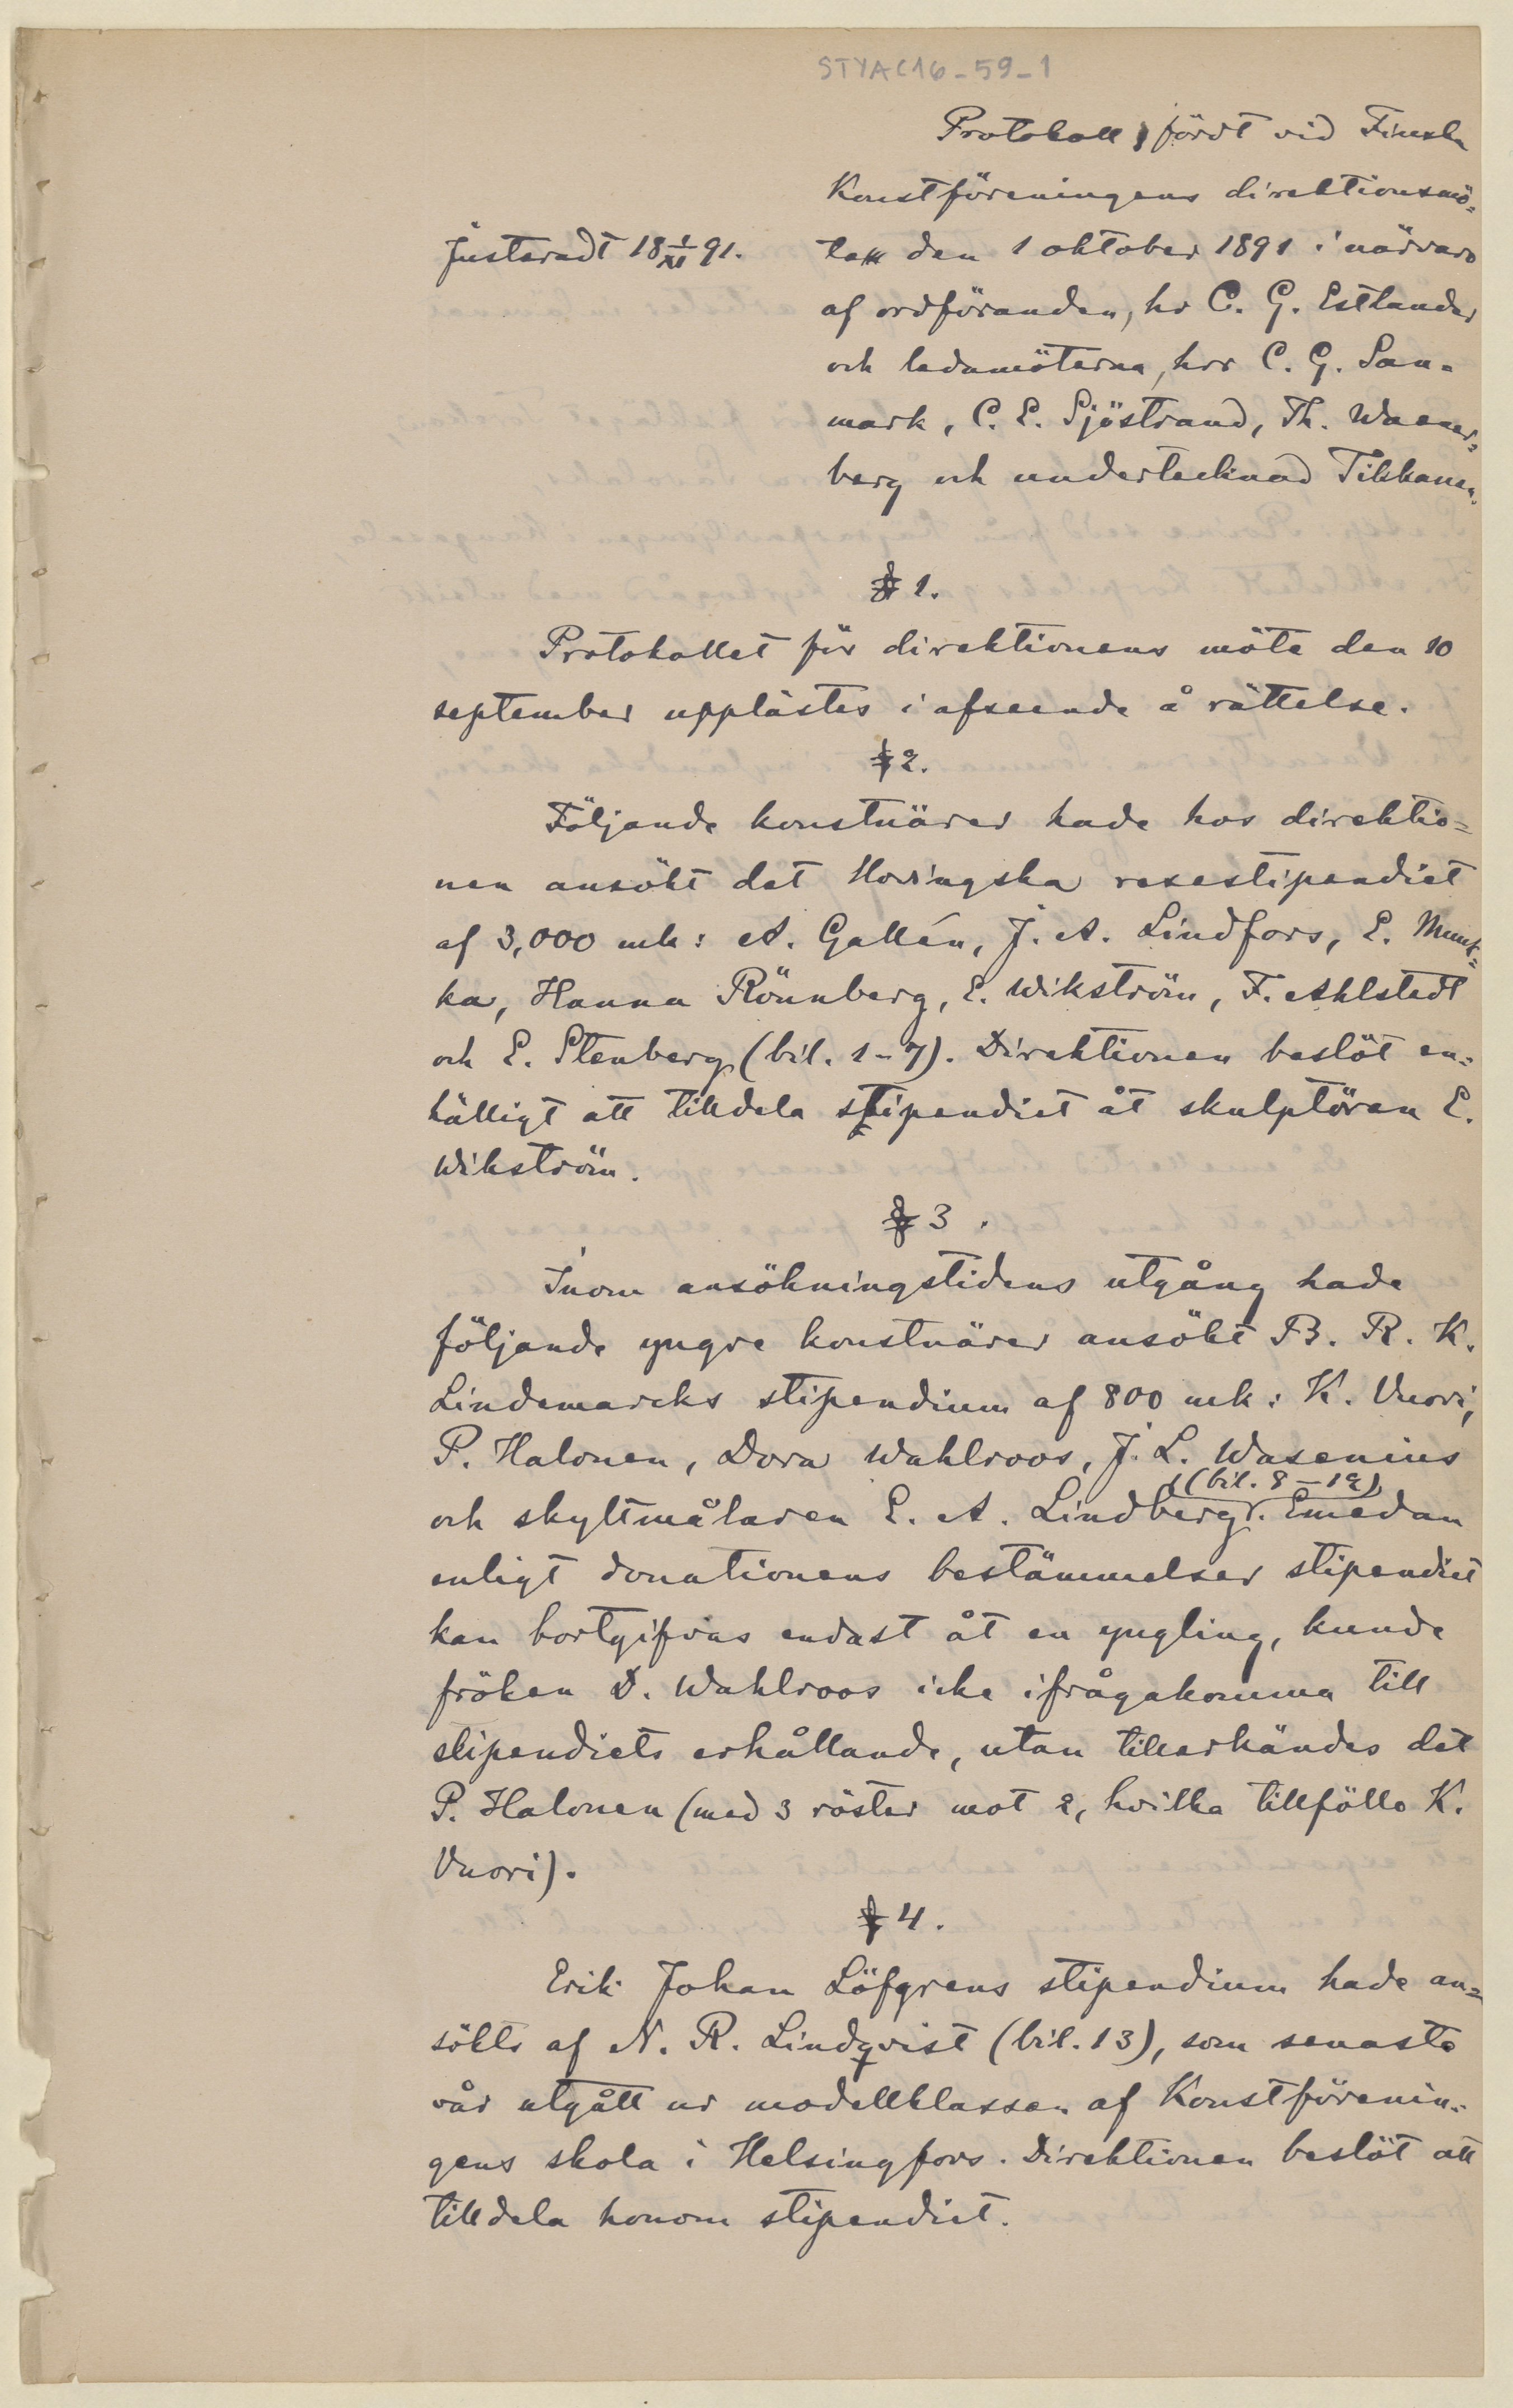 STYAC16-59-1
Protokoll, fördt vid Finska
Konstföreningens direktionsmö-
Justeradt 18 1/XI 91.
te den 1 oktober 1891 i närvaro
af ordföranden, hr C. G. Estlander
och ledamöterna, hrr C. G. San-
mark, C. E. Sjöstrand, Th. Waener-
berg och undertecknad Tikkanen.
§ 1.
Protokollet för direktionens möte den 10
september upplästes i afseende å rättelse.
§ 2.
Följande konstnärer hade hos direktio-
nen ansökt det Hovingska resestipendiet
af 3,000 mk: A. Gallén, J. A. Lindfors, E. Munst-
ka, Hanna Rönnberg, E. Wikström, F. Ahlstedt
och E. Stenberg (bil. 1-7). Direktionen beslöt en-
hälligt att tilldela stipendiet åt skulptören E.
Wikström.
§ 3.
Inom ansökningstidens utgång hade
följande yngre konstnärer ansökt B. R. K.
Lindemarcks stipendium af 800 mk: K. Vuori,
P. Halonen, Dora Wahlroos, J. L. Wasenius
(bil. 8-12)
och skyltmålaren E. A. Lindberg. Emedan
enligt donationens bestämmelser stipendiet
kan bortgifvas endast åt en yngling, kunde
fröken D. Wahlroos icke ifrågakomma till
stipendiets erhållande, utan tillerkändes det
P. Halonen (med 3 röster mot 2, hvilka tillföllo K.
Vuori).
§ 4.
Erik Johan Löfgrens stipendium hade an-
sökts af N. R. Lindqvist (bil. 13), som senaste
vår utgått ur modellklassen af Konstförenin-
gens skola i Helsingfors. Direktionen beslöt att
tilldela honom stipendiet.